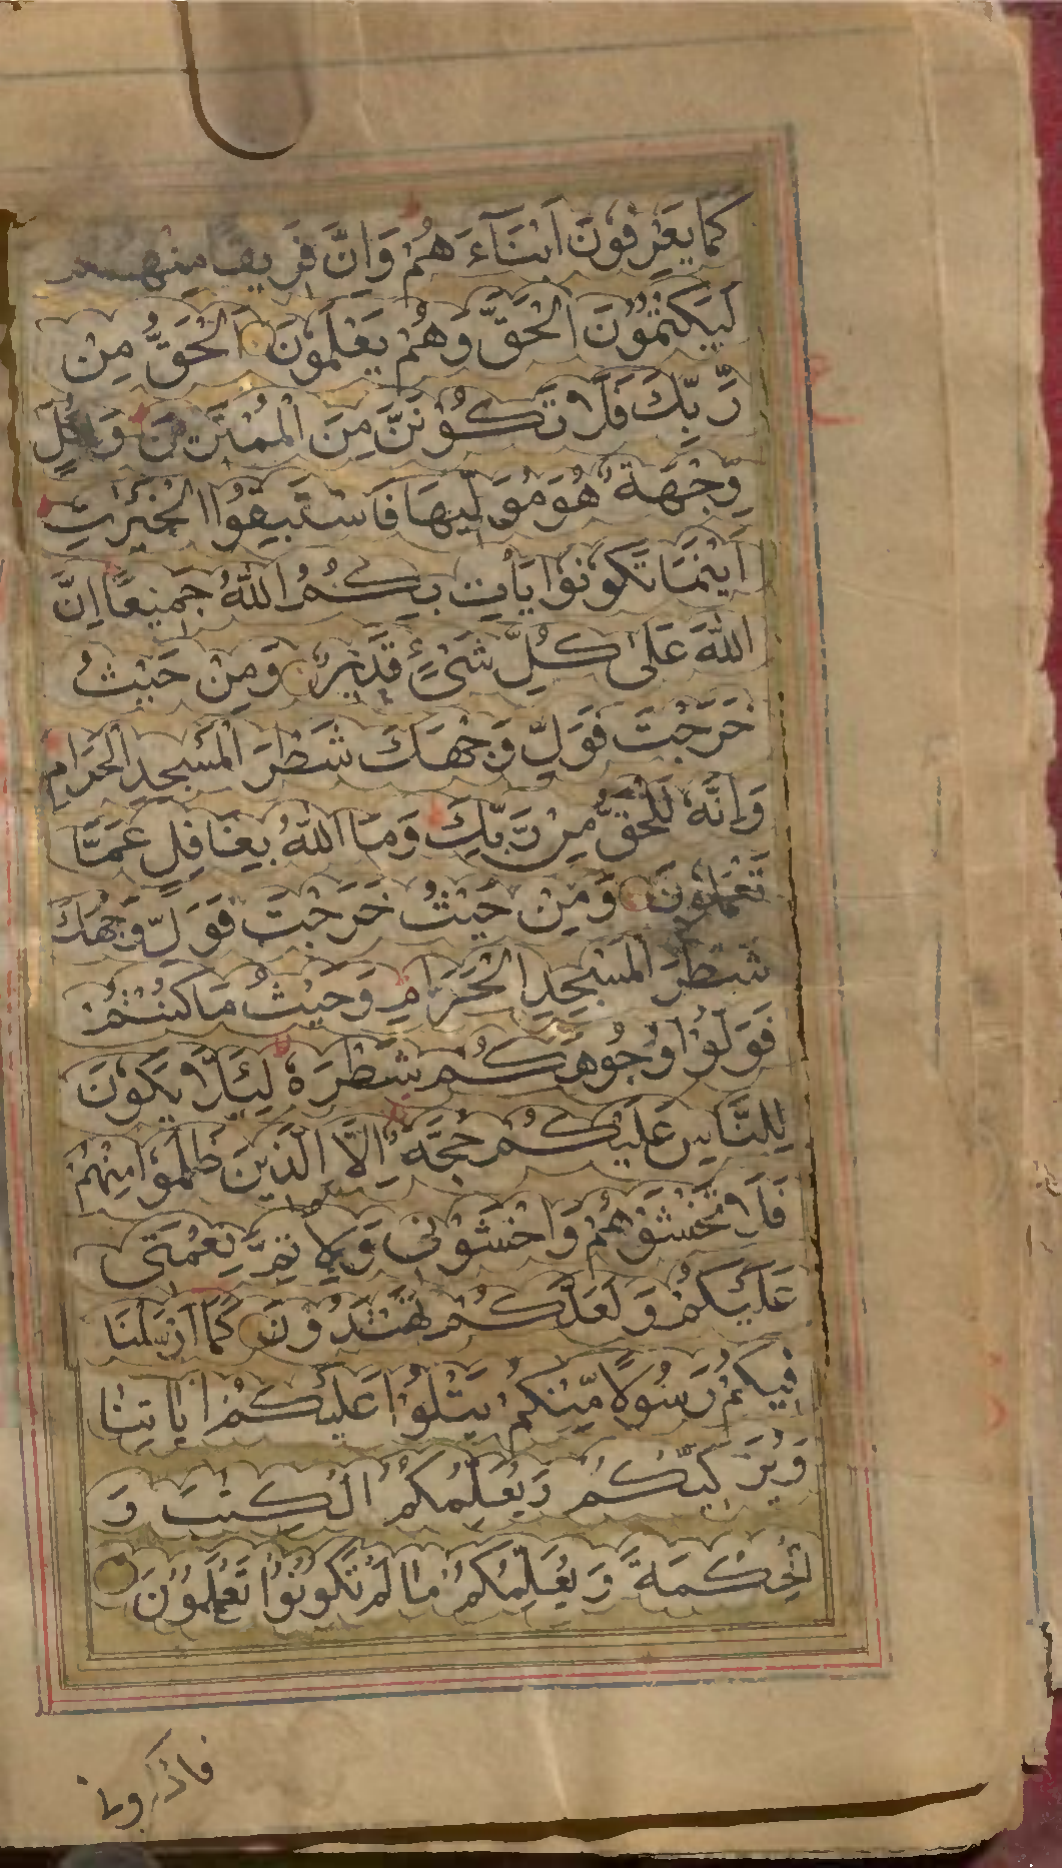 كَمَا يَعْرِفُونَ اَبْنَآءَهُمْ وَاِنَّ فَرِيقًا مِنْهُمْ
لَيَكْتُمُوْنَ الْحَقَّ وَهُمْ يَعْلَمُوْنَ اَلْحَقُّ مِنْ
رَّبِّكَ فَلَا تَكُوْنَنَّ مِنَ الْمُمْتَرِيْنَ وَلِكُلٍّ
وِّجْهَةٌ هُوَ مُوَلِّيْهَا فَاسْتَبِقُوا الْخَيْرَاتِ
اَيْنَمَا تَكُوْنُوْا يَأْتِ بِكُمُ اللّٰهُ جَمِيْعًا اِنَّ
اللّٰهَ عَلٰى كُلِّ شَيْءٍ قَدِيْرٌ وَمِنْ حَيْثُ
خَرَجْتَ فَوَلِّ وَجْهَكَ شَطْرَ الْمَسْجِدِ الْحَرَامِ
وَاِنَّهٗ لَلْحَقُّ مِنْ رَّبِّكَ وَمَا اللّٰهُ بِغَافِلٍ عَمَّا
تَعْمَلُوْنَ وَمِنْ حَيْثُ خَرَجْتَ فَوَلِّ وَجْهَكَ
شَطْرَ الْمَسْجِدِ الْحَرَامِ وَحَيْثُ مَا كُنْتُمْ
فَوَلُّوْا وُجُوْهَكُمْ شَطْرَهٗ لِئَلَّا يَكُوْنَ
لِلنَّاسِ عَلَيْكُمْ حُجَّةٌ اِلَّا الَّذِيْنَ ظَلَمُوْا مِنْهُمْ
فَلَا تَخْشَوْهُمْ وَاخْشَوْنِيْ وَلِاُتِمَّ نِعْمَتِيْ
عَلَيْكُمْ وَلَعَلَّكُمْ تَهْتَدُوْنَ كَمَا اَرْسَلْنَا
فِيْكُمْ رَسُوْلًا مِّنْكُمْ يَتْلُوْا عَلَيْكُمْ اٰيَاتِنَا
وَيُزَكِّيْكُمْ وَيُعَلِّمُكُمُ الْكِتٰبَ وَ
الْحِكْمَةَ وَيُعَلِّمُكُمْ مَا لَمْ تَكُوْنُوْا تَعْلَمُوْنَ
فاذكرونى